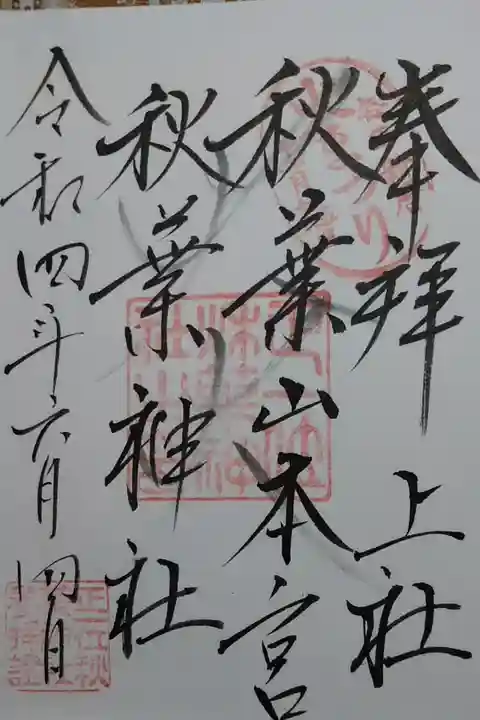 奉拝 上社
秋葉山本宮
秋葉神社
令和四年六月四日